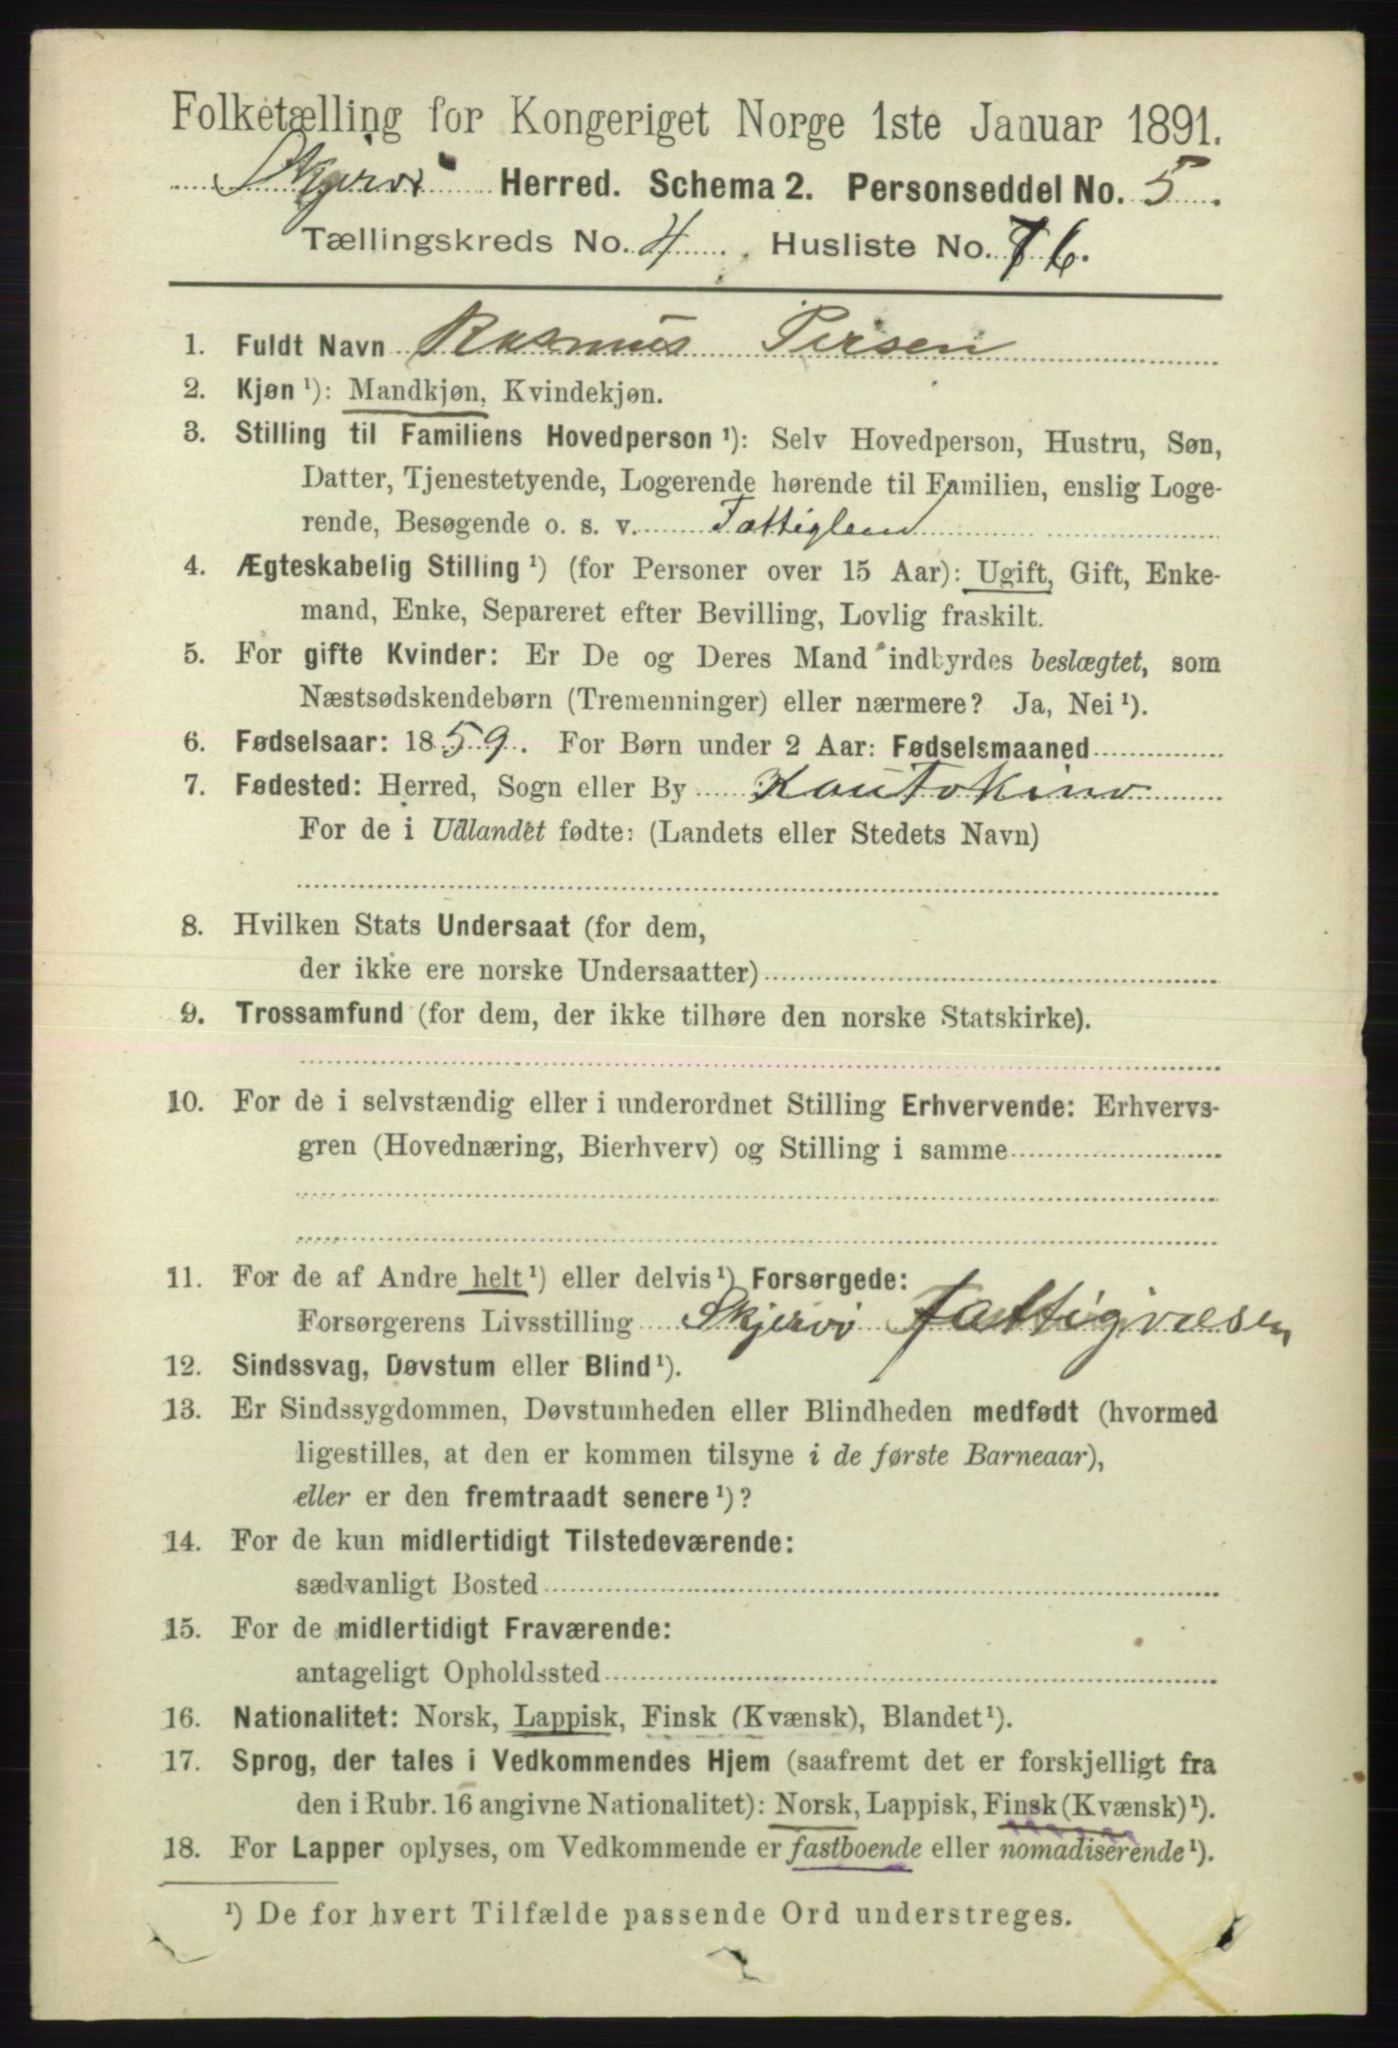 Folketælling for Kongeriget Norge 1ste Januar 1891.
Skjervø Herred. Schema 2. Personseddel No. 5.
Tællingskreds No. 4. Husliste No. 76.
1. Fuldt Navn Rasmus Persen
2. Kjøn ¹): Mandkjøn, Kvindekjøn.
3. Stilling til Familiens Hovedperson ¹): Selv Hovedperson, Hustru, Søn,
Datter, Tjenestetyende, Logerende hørende til Familien, enslig Loge-
rende, Besøgende o. s. v. Fattiglem
4. Ægteskabelig Stilling ¹) (for Personer over 15 Aar): Ugift, Gift, Enke-
mand, Enke, Separeret efter Bevilling, Lovlig fraskilt.
5. For gifte Kvinder: Er De og Deres Mand indbyrdes beslægtet, som
Næstsødskendebørn (Tremenninger) eller nærmere? Ja, Nei ¹).
6. Fødselsaar: 1859. For Børn under 2 Aar: Fødselsmaaned
7. Fødested: Herred, Sogn eller By Koutokino
For de i Udlandet fødte: (Landets eller Stedets Navn)
8. Hvilken Stats Undersaat (for dem,
der ikke ere norske Undersaatter)
9. Trossamfund (for dem, der ikke tilhøre den norske Statskirke).
10. For de i selvstændig eller i underordnet Stilling Erhvervende: Erhvervs-
gren (Hovednæring, Bierhverv) og Stilling i samme
11. For de af Andre helt ¹) eller delvis ¹) Forsørgede:
Forsørgerens Livsstilling Skjervø Fattigvæsen
12. Sindssvag, Døvstum eller Blind ¹).
13. Er Sindssygdommen, Døvstumheden eller Blindheden medfødt (hvormed
ligestilles, at den er kommen tilsyne i de første Barneaar),
eller er den fremtraadt senere ¹)?
14. For de kun midlertidigt Tilstedeværende:
sædvanligt Bosted
15. For de midlertidigt Fraværende:
antageligt Opholdssted
16. Nationalitet: Norsk, Lappisk, Finsk (Kvænsk), Blandet ¹).
17. Sprog, der tales i Vedkommendes Hjem (saafremt det er forskjelligt fra
den i Rubr. 16 angivne Nationalitet): Norsk, Lappisk, Finsk (Kvænsk) ¹).
18. For Lapper oplyses, om Vedkommende er fastboende eller nomadiserende ¹).
¹) De for hvert Tilfælde passende Ord understreges.